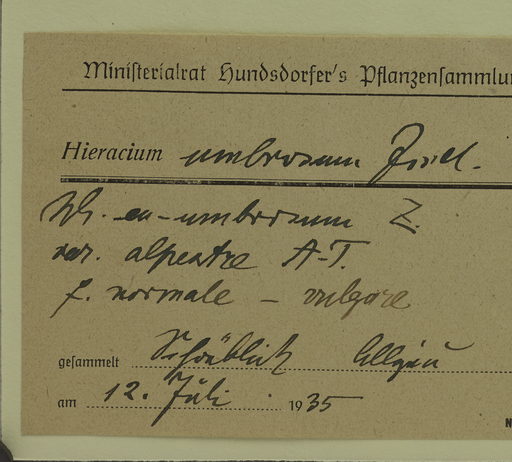 Ministerialrat Hundsdorfer's Pflanzensammlu
Hieracium umbrosum Jord.
ssp. eu-umbrosum Z.
var. alpestre A-T.
f. normale – vulgare
gesammelt Schönblick Allgäu
am 12. Juli 1935
N